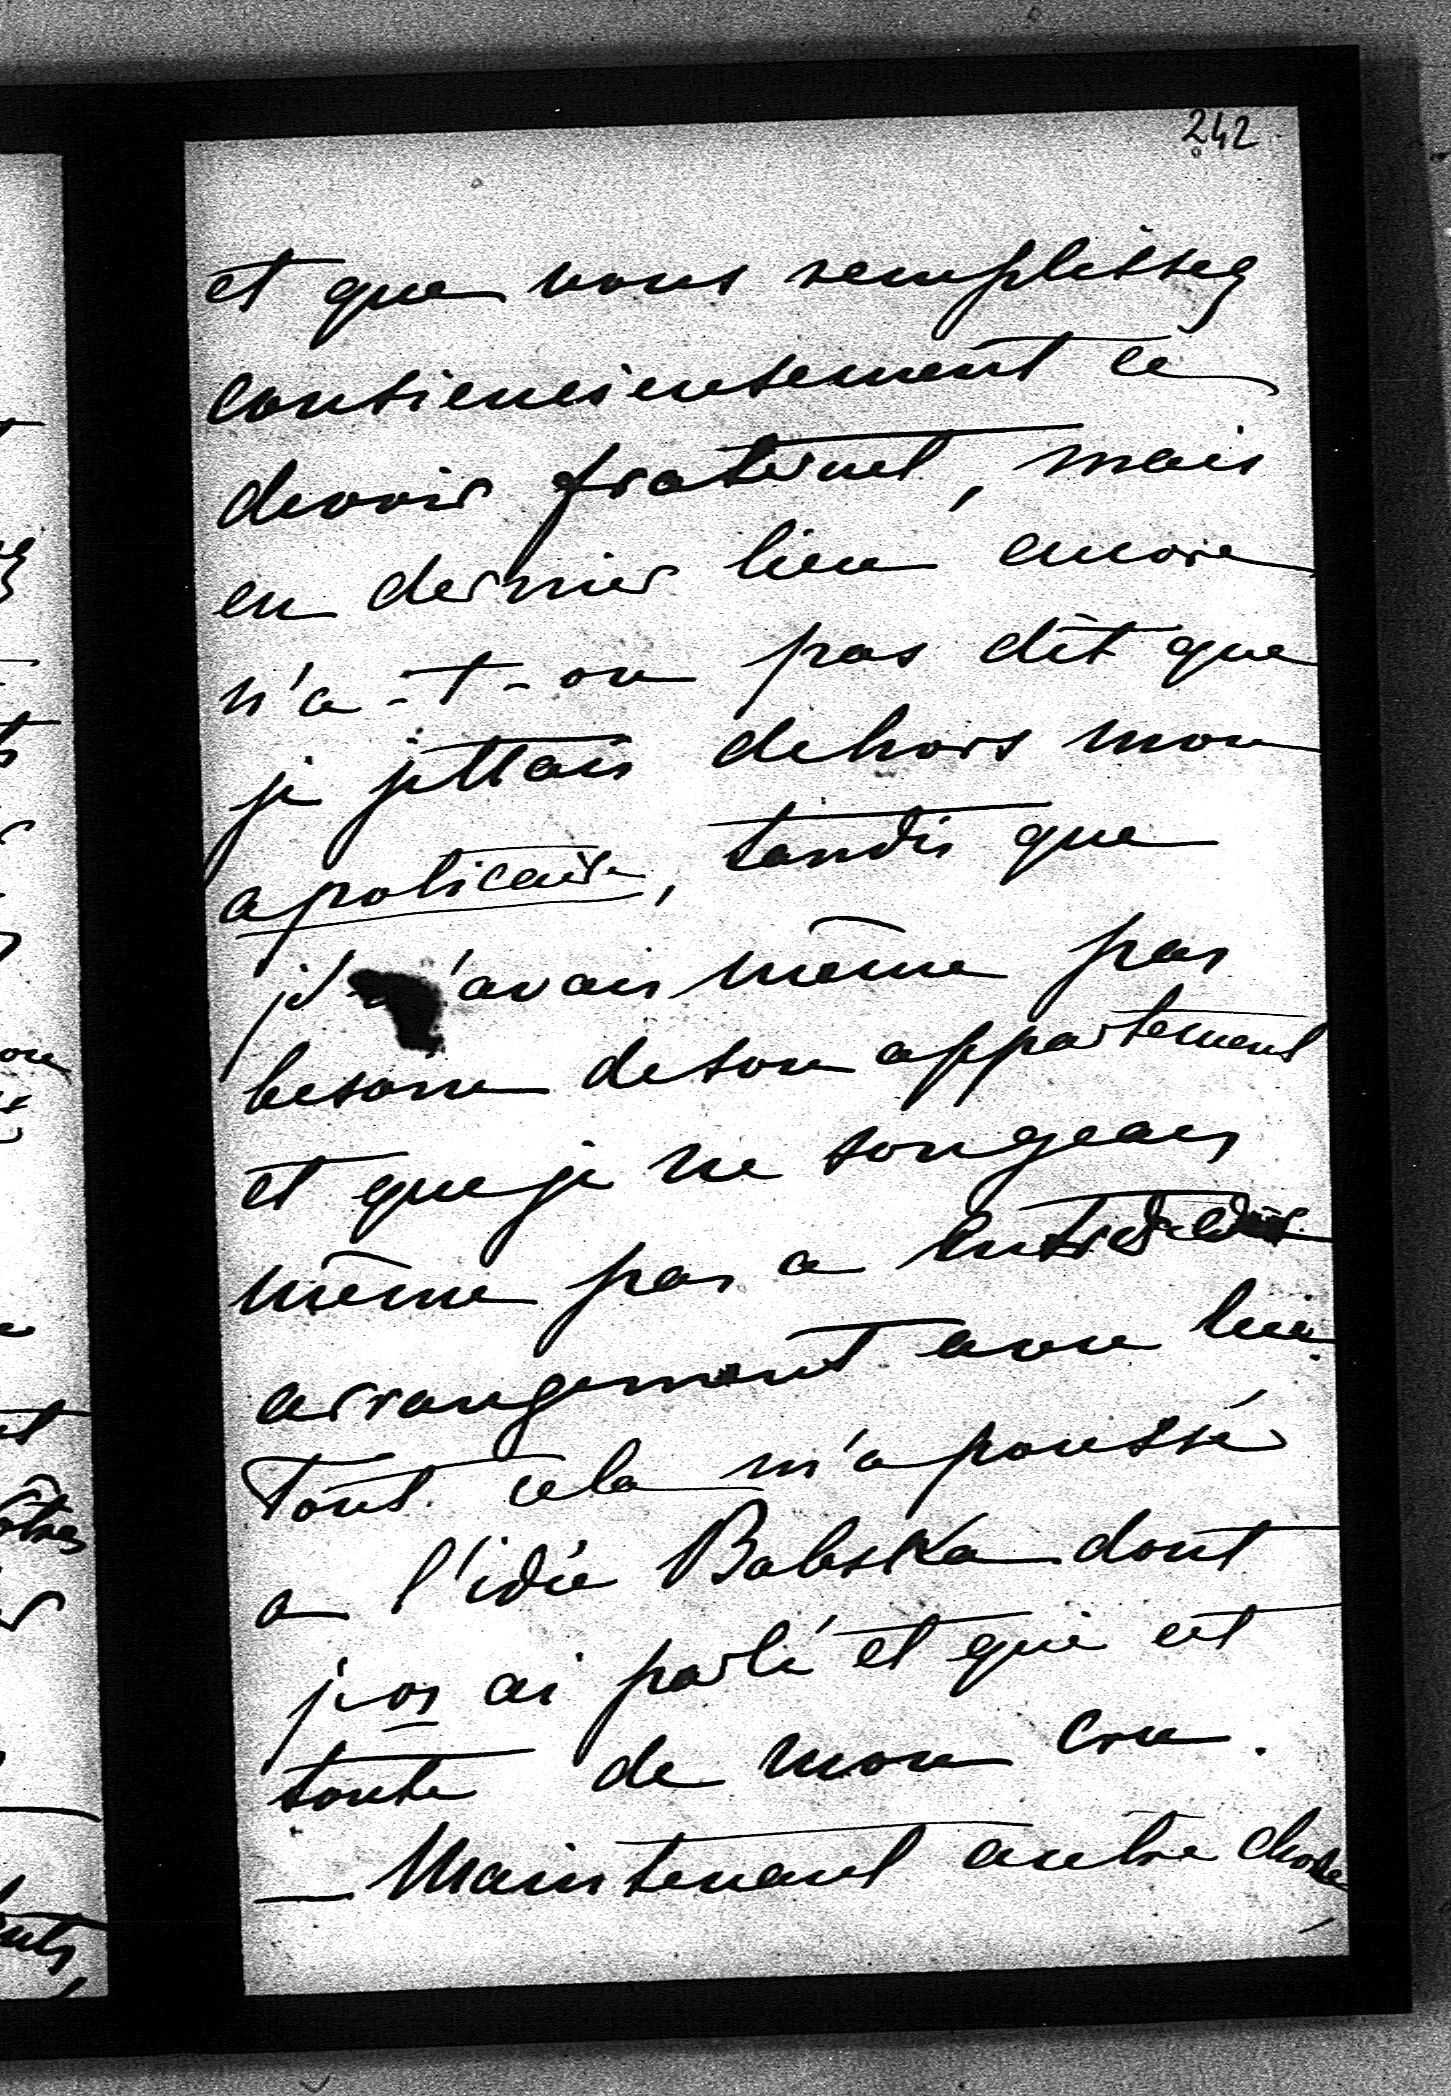 242
et que vous remplissez
consciencieusement ce
devoir fraternel, mais
en dernier lieu encore
n'a-t-on pas dit que
je jettais dehors mon
apoticaire, tandis que
je n'avais même pas
besoin de son appartement
et que je ne songeais
même pas a
arrangement avec lui.
Tout cela m'a poussé
a l'idée Babska dont
je vs ai parlé et qui est
toute de mon cru.
— Maintenant autre chose,